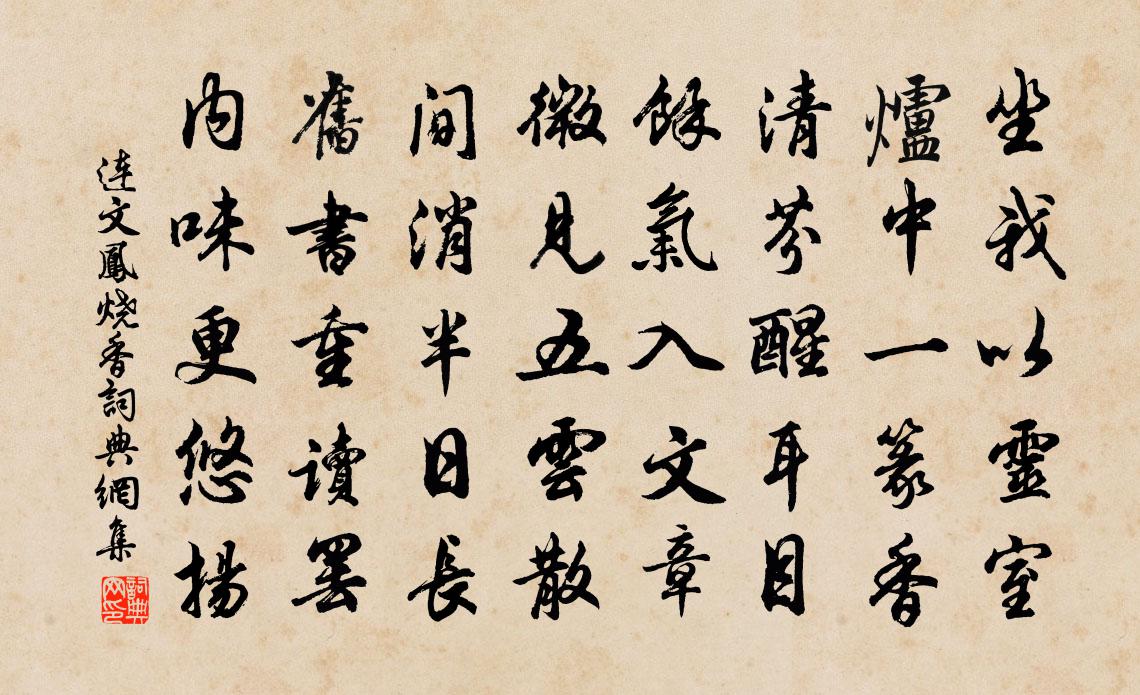 坐我以靈室
爐中一篆香
清芬醒耳目
餘氣入文章
微見五雲散
間消半日長
舊書重讀罷
内味更悠揚
連文鳳燒香詞典網集
詞典網印